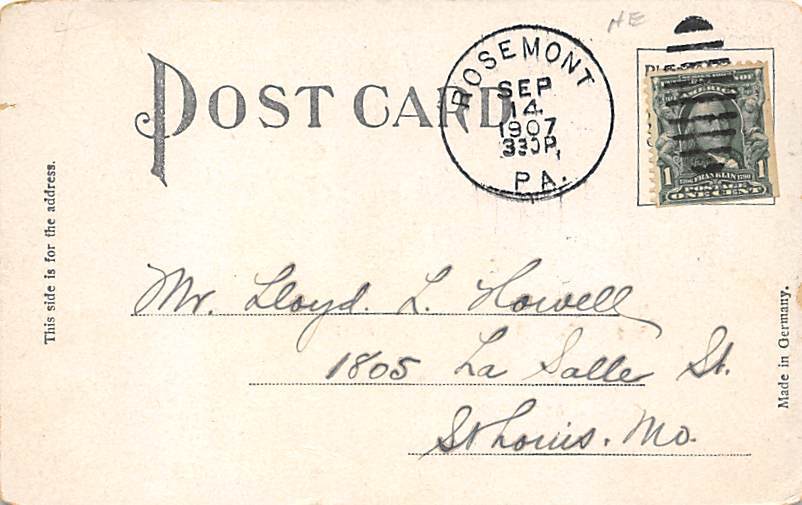 HE
POST CARD
ROSEMONT
SEP
14
1907
330P
PA.
AMERICA
FRANKLIN
1 POSTAGE 1
ONE CENT
This side is for the address.
Mr. Lloyd. L. Howell
1805 La Salle St.
St Louis. Mo.
Made in Germany.